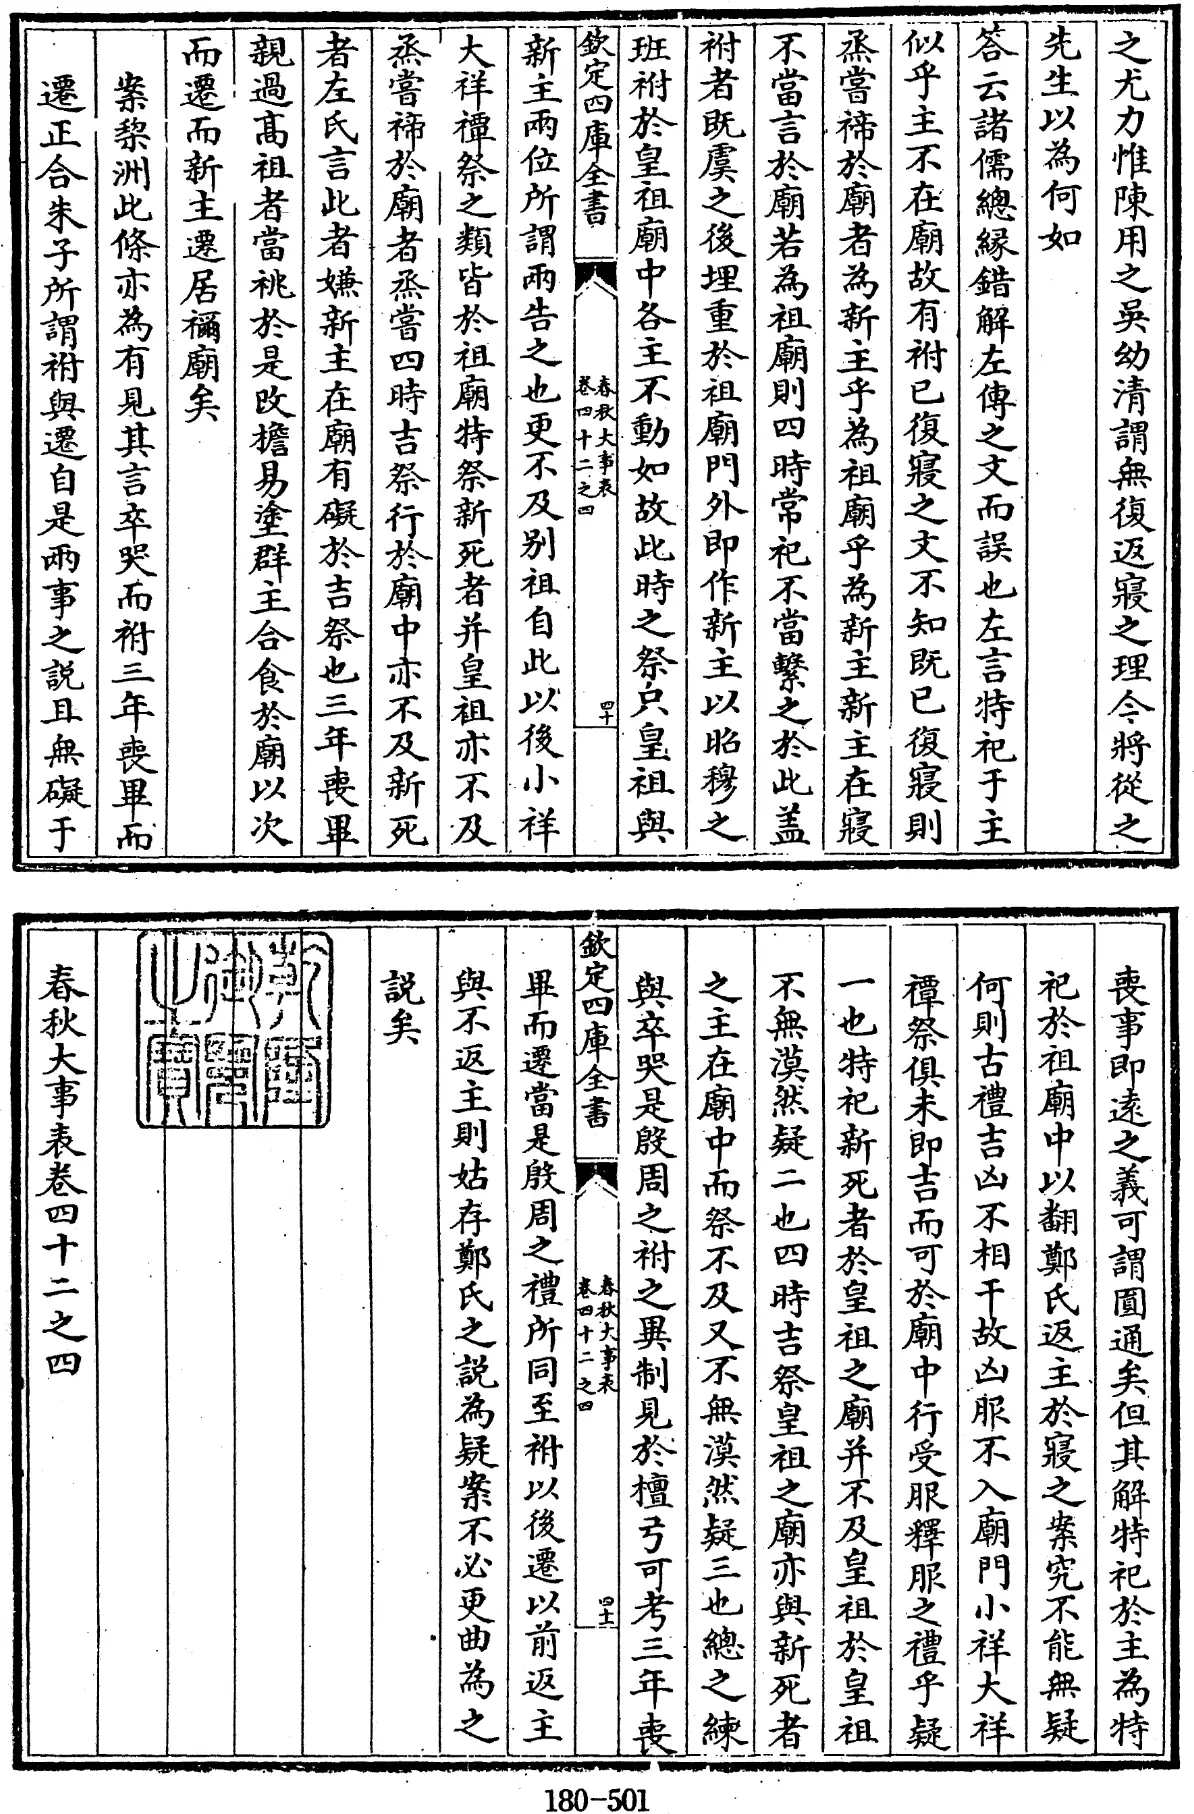 之尤力惟陳用之吳幼清謂無復返寢之理今將從之
先生以為何如
答云諸儒總緣錯解左傳之文而誤也左言特祀于主
似乎主不在廟故有祔已復寢之文不知既已復寢則
烝嘗禘於廟者為新主乎為祖廟乎為新主新主在寢
不當言於廟若為祖廟則四時常祀不當繫之於此盖
祔者既虞之後埋重於祖廟門外即作新主以昭穆之
班祔於皇祖廟中各主不動如故此時之祭只皇祖與
欽定四庫全書
春秋大事表
卷四十二之四
四十
新主兩位所謂兩告之也更不及别祖自此以後小祥
大祥禫祭之類皆於祖廟特祭新死者并皇祖亦不及
烝嘗禘於廟者烝嘗四時吉祭行於廟中亦不及新死
者左氏言此者嫌新主在廟有礙於吉祭也三年喪畢
親過高祖者當祧於是改檐易塗群主合食於廟以次
而遷而新主遷居禰廟矣
案棃洲此條亦為有見其言卒哭而祔三年喪畢而
遷正合朱子所謂祔與遷自是兩事之説且無礙于
喪事即逺之義可謂圓通矣但其解特祀於主為特
祀於祖廟中以翻鄭氏返主於寢之案究不能無疑
何則古禮吉凶不相干故凶服不入廟門小祥大祥
禫祭俱未即吉而可於廟中行受服釋服之禮乎疑
一也特祀新死者於皇祖之廟并不及皇祖於皇祖
不無漠然疑二也四時吉祭皇祖之廟亦與新死者
之主在廟中而祭不及又不無漠然疑三也總之練
與卒哭是殷周之祔之異制見於檀弓可考三年喪
欽定四庫全書
春秋大事表
卷四十二之四
四十一
畢而遷當是殷周之禮所同至祔以後遷以前返主
與不返主則姑存鄭氏之説為疑案不必更曲為之
説矣
乾隆御覽之寶
春秋大事表卷四十二之四
180-501